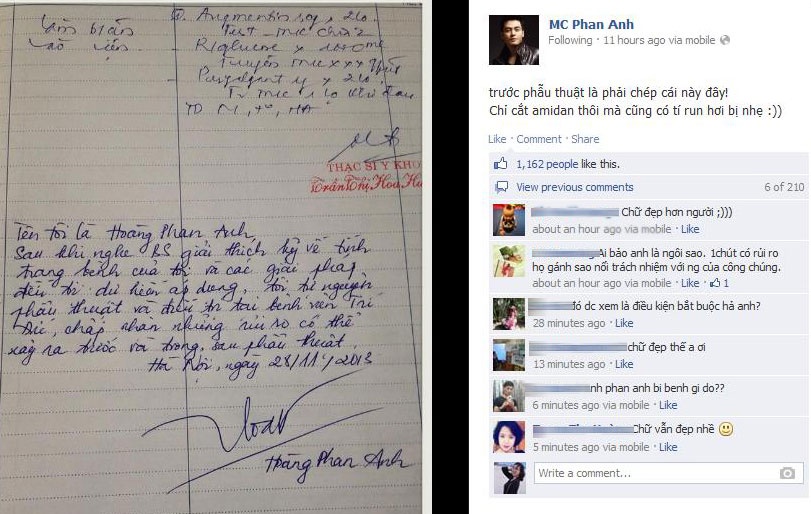 Augmentin 1g x 2lọ
Test - mc chia 2
Truyền
THẠC SĨ Y KHO
Trần Thị Hoa
Tên tôi là Hoàng Phan Anh
Sau khi nghe BS giải thích kỹ về tình
trạng bệnh của tôi và các giải pháp
điều trị dự kiến áp dụng, tôi tự nguyện
phẫu thuật và điều trị tại bệnh viện Trí
Đức, chấp nhận những rủi ro có thể
xảy ra trước và trong, sau phẫu thuật.
Hà Nội, ngày 28/11/2013
Hoàng Phan Anh
MC Phan Anh
Following · 11 hours ago via mobile
trước phẫu thuật là phải chép cái này đây!
Chỉ cắt amidan thôi mà cũng có tí run hơi bị nhẹ :))
Like · Comment · Share
1,162 people like this.
View previous comments 6 of 210
Chữ đẹp hơn người ;)))
about an hour ago via mobile · Like
Ai bảo anh là ngôi sao. 1chút có rủi ro
họ gánh sao nổi trách nhiệm với ng của công chúng.
about an hour ago via mobile · Like · 1
đó dc xem là điều kiện bắt buộc hả anh?
28 minutes ago · Like
chữ đẹp thế a ơi
13 minutes ago · Like
nh phan anh bi benh gi do??
6 minutes ago via mobile · Like
Chữ vẫn đẹp nhề
5 minutes ago via mobile · Like
Write a comment...